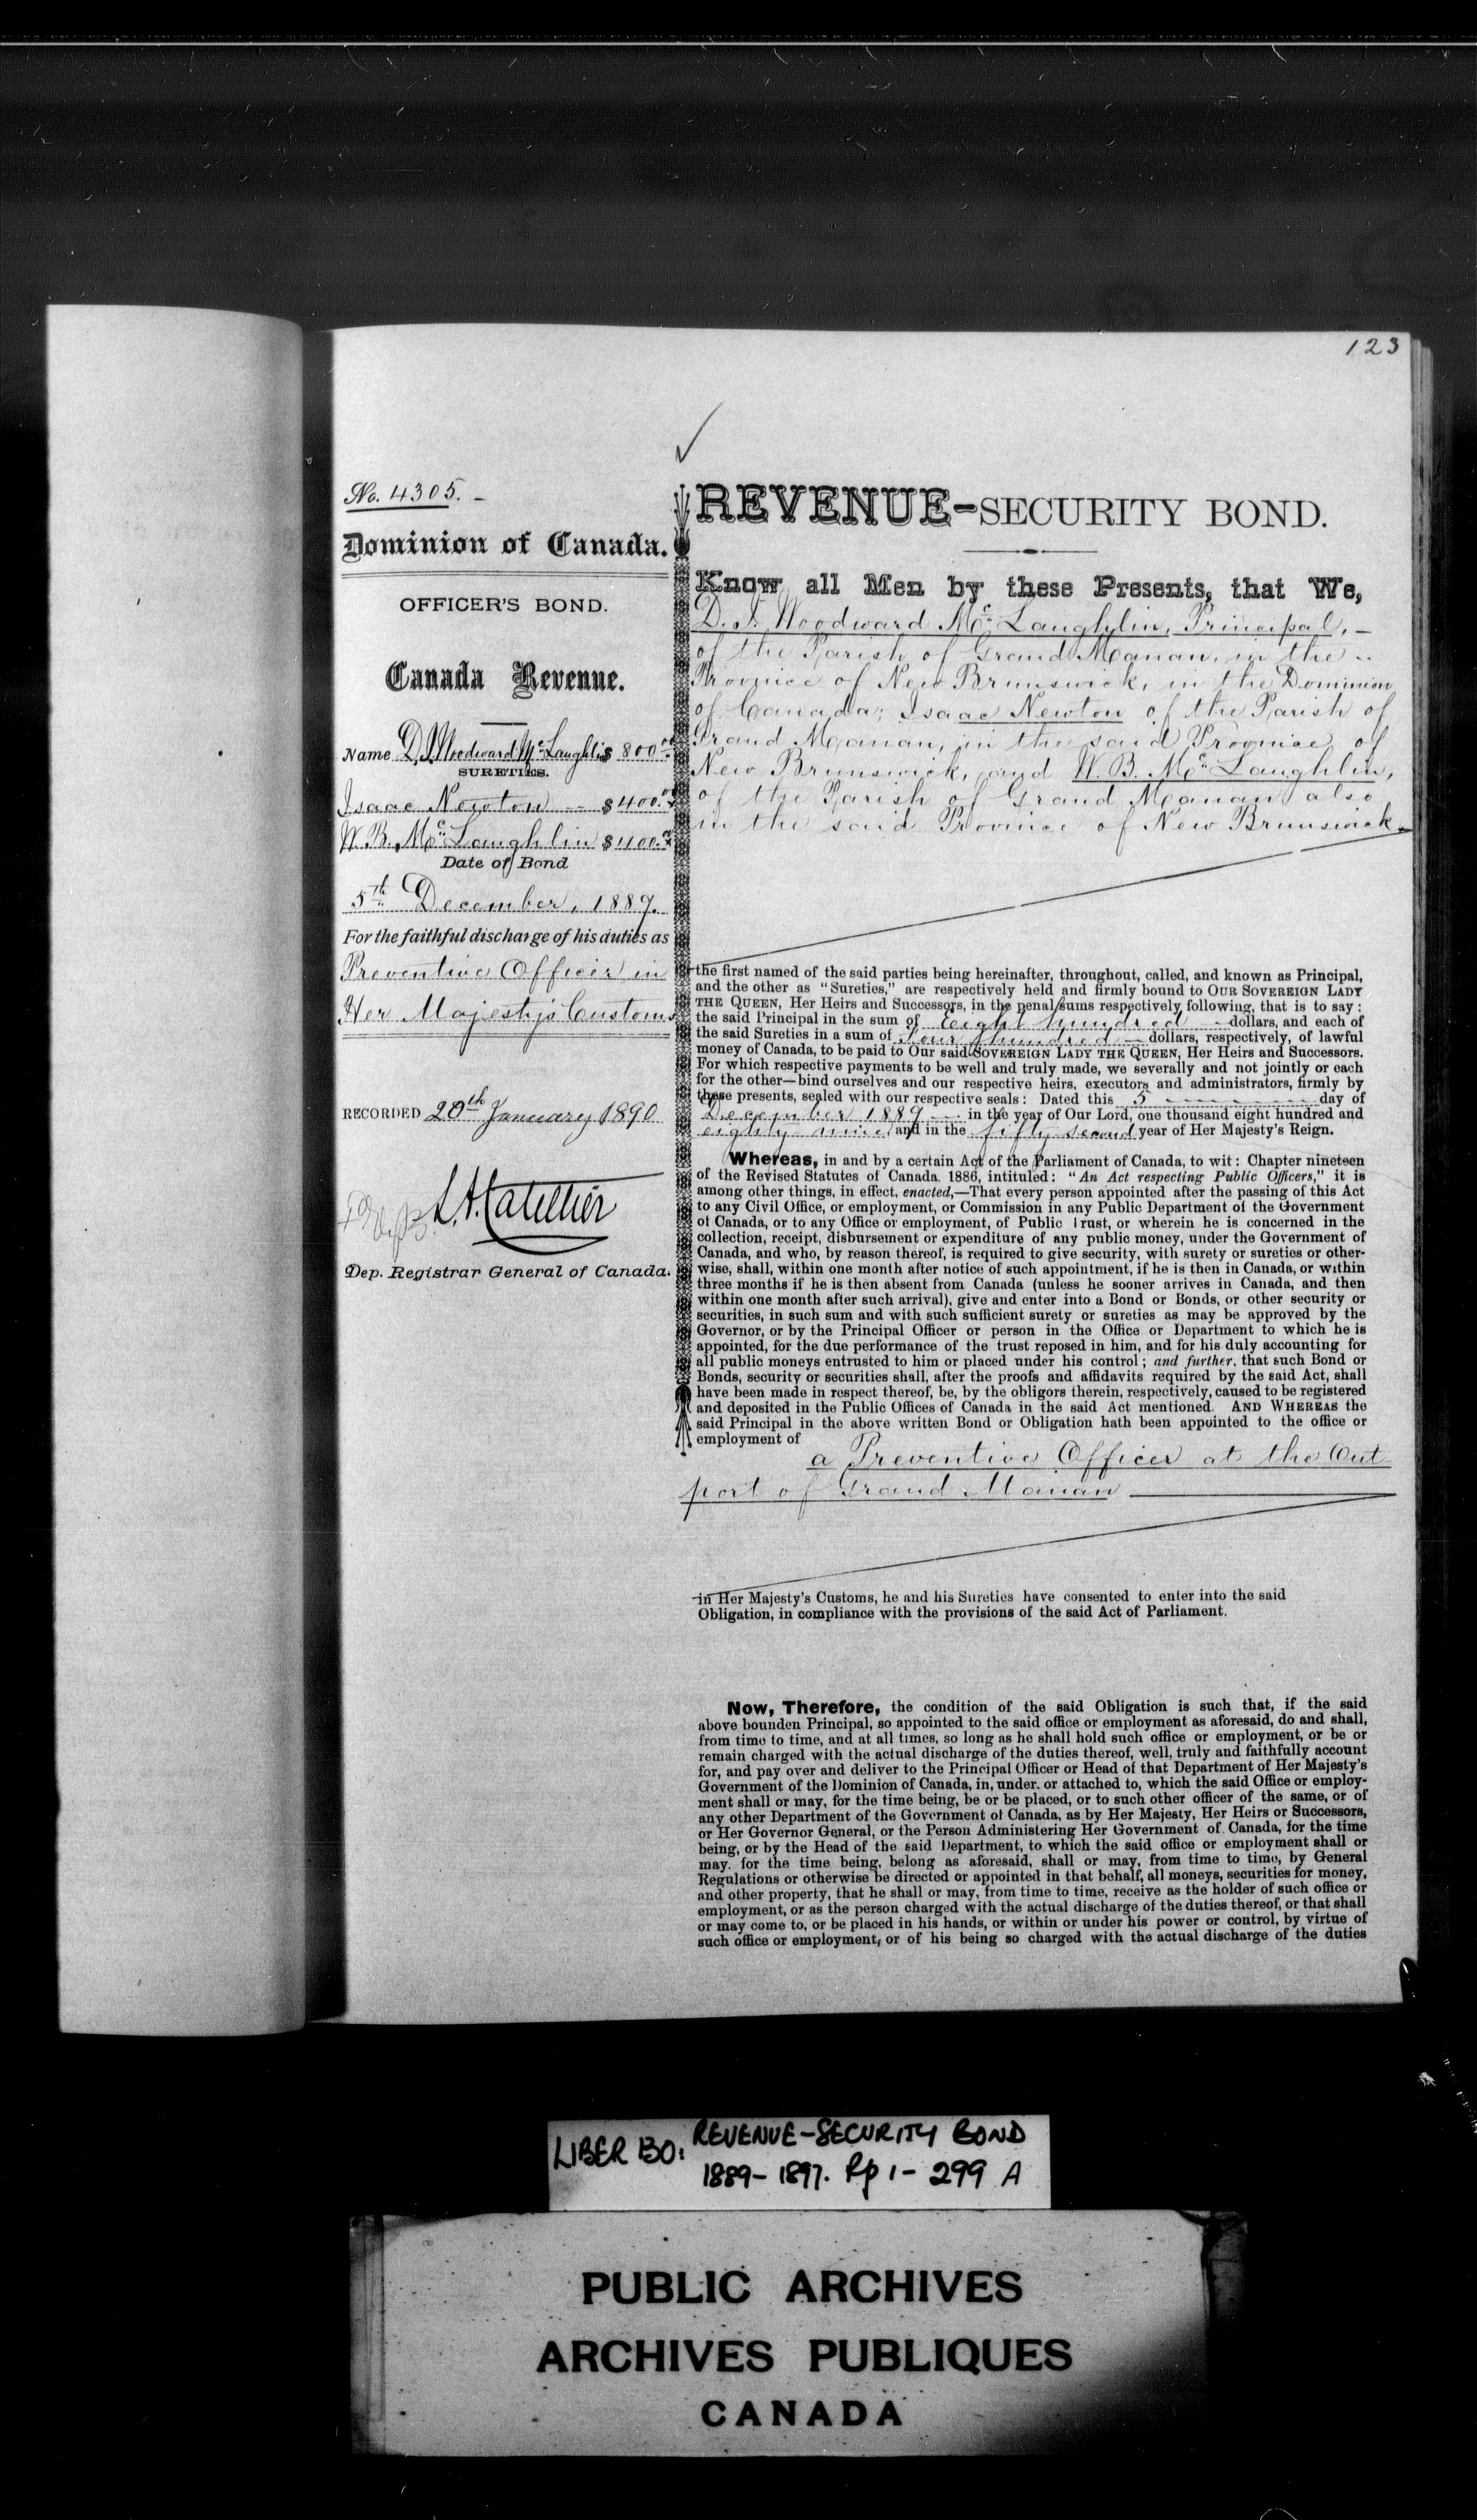 123
No. 4305. -
Dominion of Canada.
OFFICER'S BOND.
Canada Revenue.
Name D. J. Woodward McLaughlin $ 800.00
SURETIES.
Isaac Newton — $ 400.00
W. B. McLaughlin $ 400.00
Date of Bond
5th December, 1889.
For the faithful discharge of his duties as
Preventive Officer in
Her Majesty's Customs
RECORDED 20th January 1890
L. A. Catellier
Dep. Registrar General of Canada.
REVENUE-SECURITY BOND.
Know all Men by these Presents, that We,
D. J. Woodward McLaughlin, Principal, -
of the Parish of Grand Manan, in the --
Province of New Brunswick, in the Dominion
of Canada; Isaac Newton of the Parish of
Grand Manan, in the said Province of
New Brunswick, and W. B. McLaughlin,
of the Parish of Grand Manan also
in the said Province of New Brunswick.
the first named of the said parties being hereinafter, throughout, called, and known as Principal,
and the other as "Sureties," are respectively held and firmly bound to OUR SOVEREIGN LADY
THE QUEEN, Her Heirs and Successors, in the penal sums respectively following, that is to say:
the said Principal in the sum of Eight hundred — dollars, and each of
the said Sureties in a sum of Four hundred — dollars, respectively, of lawful
money of Canada, to be paid to Our said SOVEREIGN LADY THE QUEEN, Her Heirs and Successors.
For which respective payments to be well and truly made, we severally and not jointly or each
for the other—bind ourselves and our respective heirs, executors and administrators, firmly by
these presents, sealed with our respective seals: Dated this 5 — day of
December 1889 — in the year of Our Lord, one thousand eight hundred and
eighty nine, and in the fifty second year of Her Majesty's Reign.
Whereas, in and by a certain Act of the Parliament of Canada, to wit: Chapter nineteen
of the Revised Statutes of Canada, 1886, intituled: "An Act respecting Public Officers," it is
among other things, in effect, enacted,—That every person appointed after the passing of this Act
to any Civil Office, or employment, or Commission in any Public Department of the Government
of Canada, or to any Office or employment, of Public Trust, or wherein he is concerned in the
collection, receipt, disbursement or expenditure of any public money, under the Government of
Canada, and who, by reason thereof, is required to give security, with surety or sureties or other-
wise, shall, within one month after notice of such appointment, if he is then in Canada, or within
three months if he is then absent from Canada (unless he sooner arrives in Canada, and then
within one month after such arrival), give and enter into a Bond or Bonds, or other security or
securities, in such sum and with such sufficient surety or sureties as may be approved by the
Governor, or by the Principal Officer or person in the Office or Department to which he is
appointed, for the due performance of the trust reposed in him, and for his duly accounting for
all public moneys entrusted to him or placed under his control; and further, that such Bond or
Bonds, security or securities shall, after the proofs and affidavits required by the said Act, shall
have been made in respect thereof, be, by the obligors therein, respectively, caused to be registered
and deposited in the Public Offices of Canada in the said Act mentioned. AND WHEREAS the
said Principal in the above written Bond or Obligation hath been appointed to the office or
employment of
a Preventive Officer at the Out
port of Grand Manan
in Her Majesty's Customs, he and his Sureties have consented to enter into the said
Obligation, in compliance with the provisions of the said Act of Parliament.
Now, Therefore, the condition of the said Obligation is such that, if the said
above bounden Principal, so appointed to the said office or employment as aforesaid, do and shall,
from time to time, and at all times, so long as he shall hold such office or employment, or be or
remain charged with the actual discharge of the duties thereof, well, truly and faithfully account
for, and pay over and deliver to the Principal Officer or Head of that Department of Her Majesty's
Government of the Dominion of Canada, in, under, or attached to, which the said Office or employ-
ment shall or may, for the time being, be or be placed, or to such other officer of the same, or of
any other Department of the Government of Canada, as by Her Majesty, Her Heirs or Successors,
or Her Governor General, or the Person Administering Her Government of Canada, for the time
being, or by the Head of the said Department, to which the said office or employment shall or
may, for the time being, belong as aforesaid, shall or may, from time to time, by General
Regulations or otherwise be directed or appointed in that behalf, all moneys, securities for money,
and other property, that he shall or may, from time to time, receive as the holder of such office or
employment, or as the person charged with the actual discharge of the duties thereof, or that shall
or may come to, or be placed in his hands, or within or under his power or control, by virtue of
such office or employment, or of his being so charged with the actual discharge of the duties
LIBER 130: REVENUE-SECURITY BOND
1889-1897. Pp 1-299 A
PUBLIC ARCHIVES
ARCHIVES PUBLIQUES
CANADA